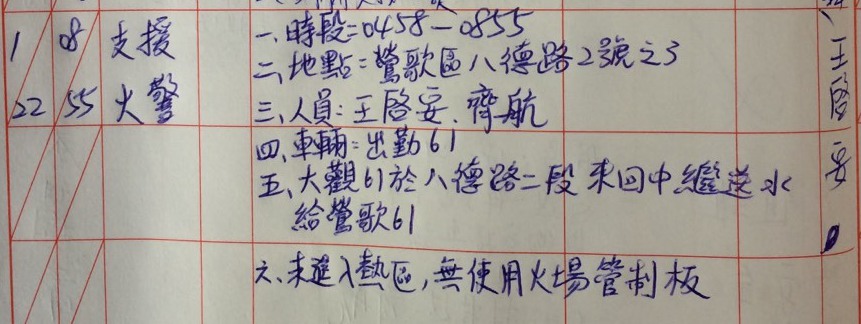 1 08 支援 一、時段:0458-0855
二、地點:鶯歌區八德路2號之3
22 55 火警 三、人員:王啓安、齊航
四、車輛:出勤61
五、大觀61於八德路二段來回中繼送水
給鶯歌61
六、未進入熱區,無使用火場管制板
王啓安